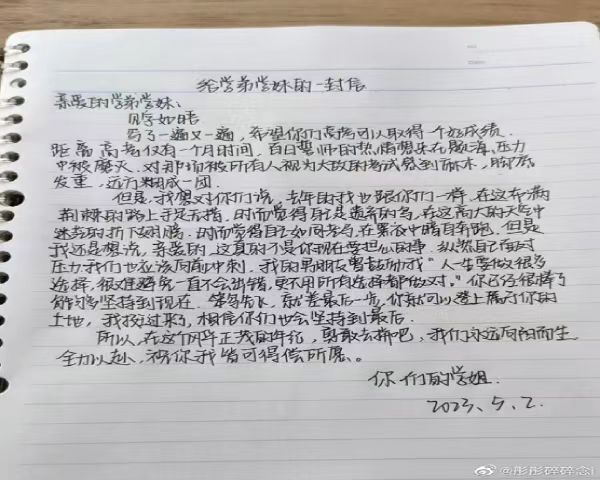 给学弟学妹的一封信
亲爱的学弟学妹、
见字如晤
写了一遍又一遍，希望你们高考可以取得一个好成绩.
距离高考仅有一个月时间，百日誓师的热情想来在题海、压力
中被磨灭.对那场被所有人视为大敌的考试感到麻木，脚底
发重，远方糊成一团.
但是，我想对你们说，去年的我也跟你们一样.在这布满
荆棘的路上手足无措，时而觉得自己是遗弃的鸟，在这高大的天空中
迷茫的折下翅膀.时而觉得自己如同老鸟，在黑夜中暗自奔跑.但是
我还是想说，亲爱的，这真的不是你现在要担心的事.纵然自己面对
压力我们也应该向前冲刺.我的男朋友曾鼓励我"人一生要做很多
选择，很难避免一直不会出错，更不用所有选择都做对."你已经很棒了
能够坚持到现在.笨鸟先飞，就差最后一步，你就可以踏上属于你的
土地，我挨过来了，相信你们也会坚持到最后.
所以，在这个风华正茂的年纪，勇敢去拼吧，我们永远向阳而生
全力以赴，祝你我皆可得偿所愿。
你们的学姐.
2023、5、2.
@彤彤碎碎念i